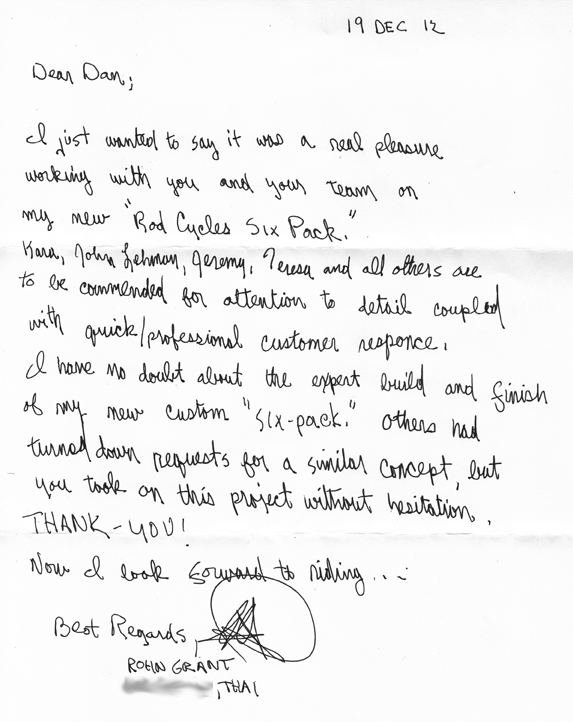 19 DEC 12
Dear Dan;
I just wanted to say it was a real pleasure
working with you and your team on
my new "Rod Cycles Six Pack."
Kara, John Lehman, Jeremy, Teresa and all others are
to be commended for attention to detail coupled
with quick/professional customer responce.
I have no doubt about the expert build and finish
of my new custom "six-pack." Others had
turned down requests for a similar concept, but
you took on this project without hesitation.
THANK-YOU!
Now I look forward to riding...
Best Regards,
GRANT
, THAI